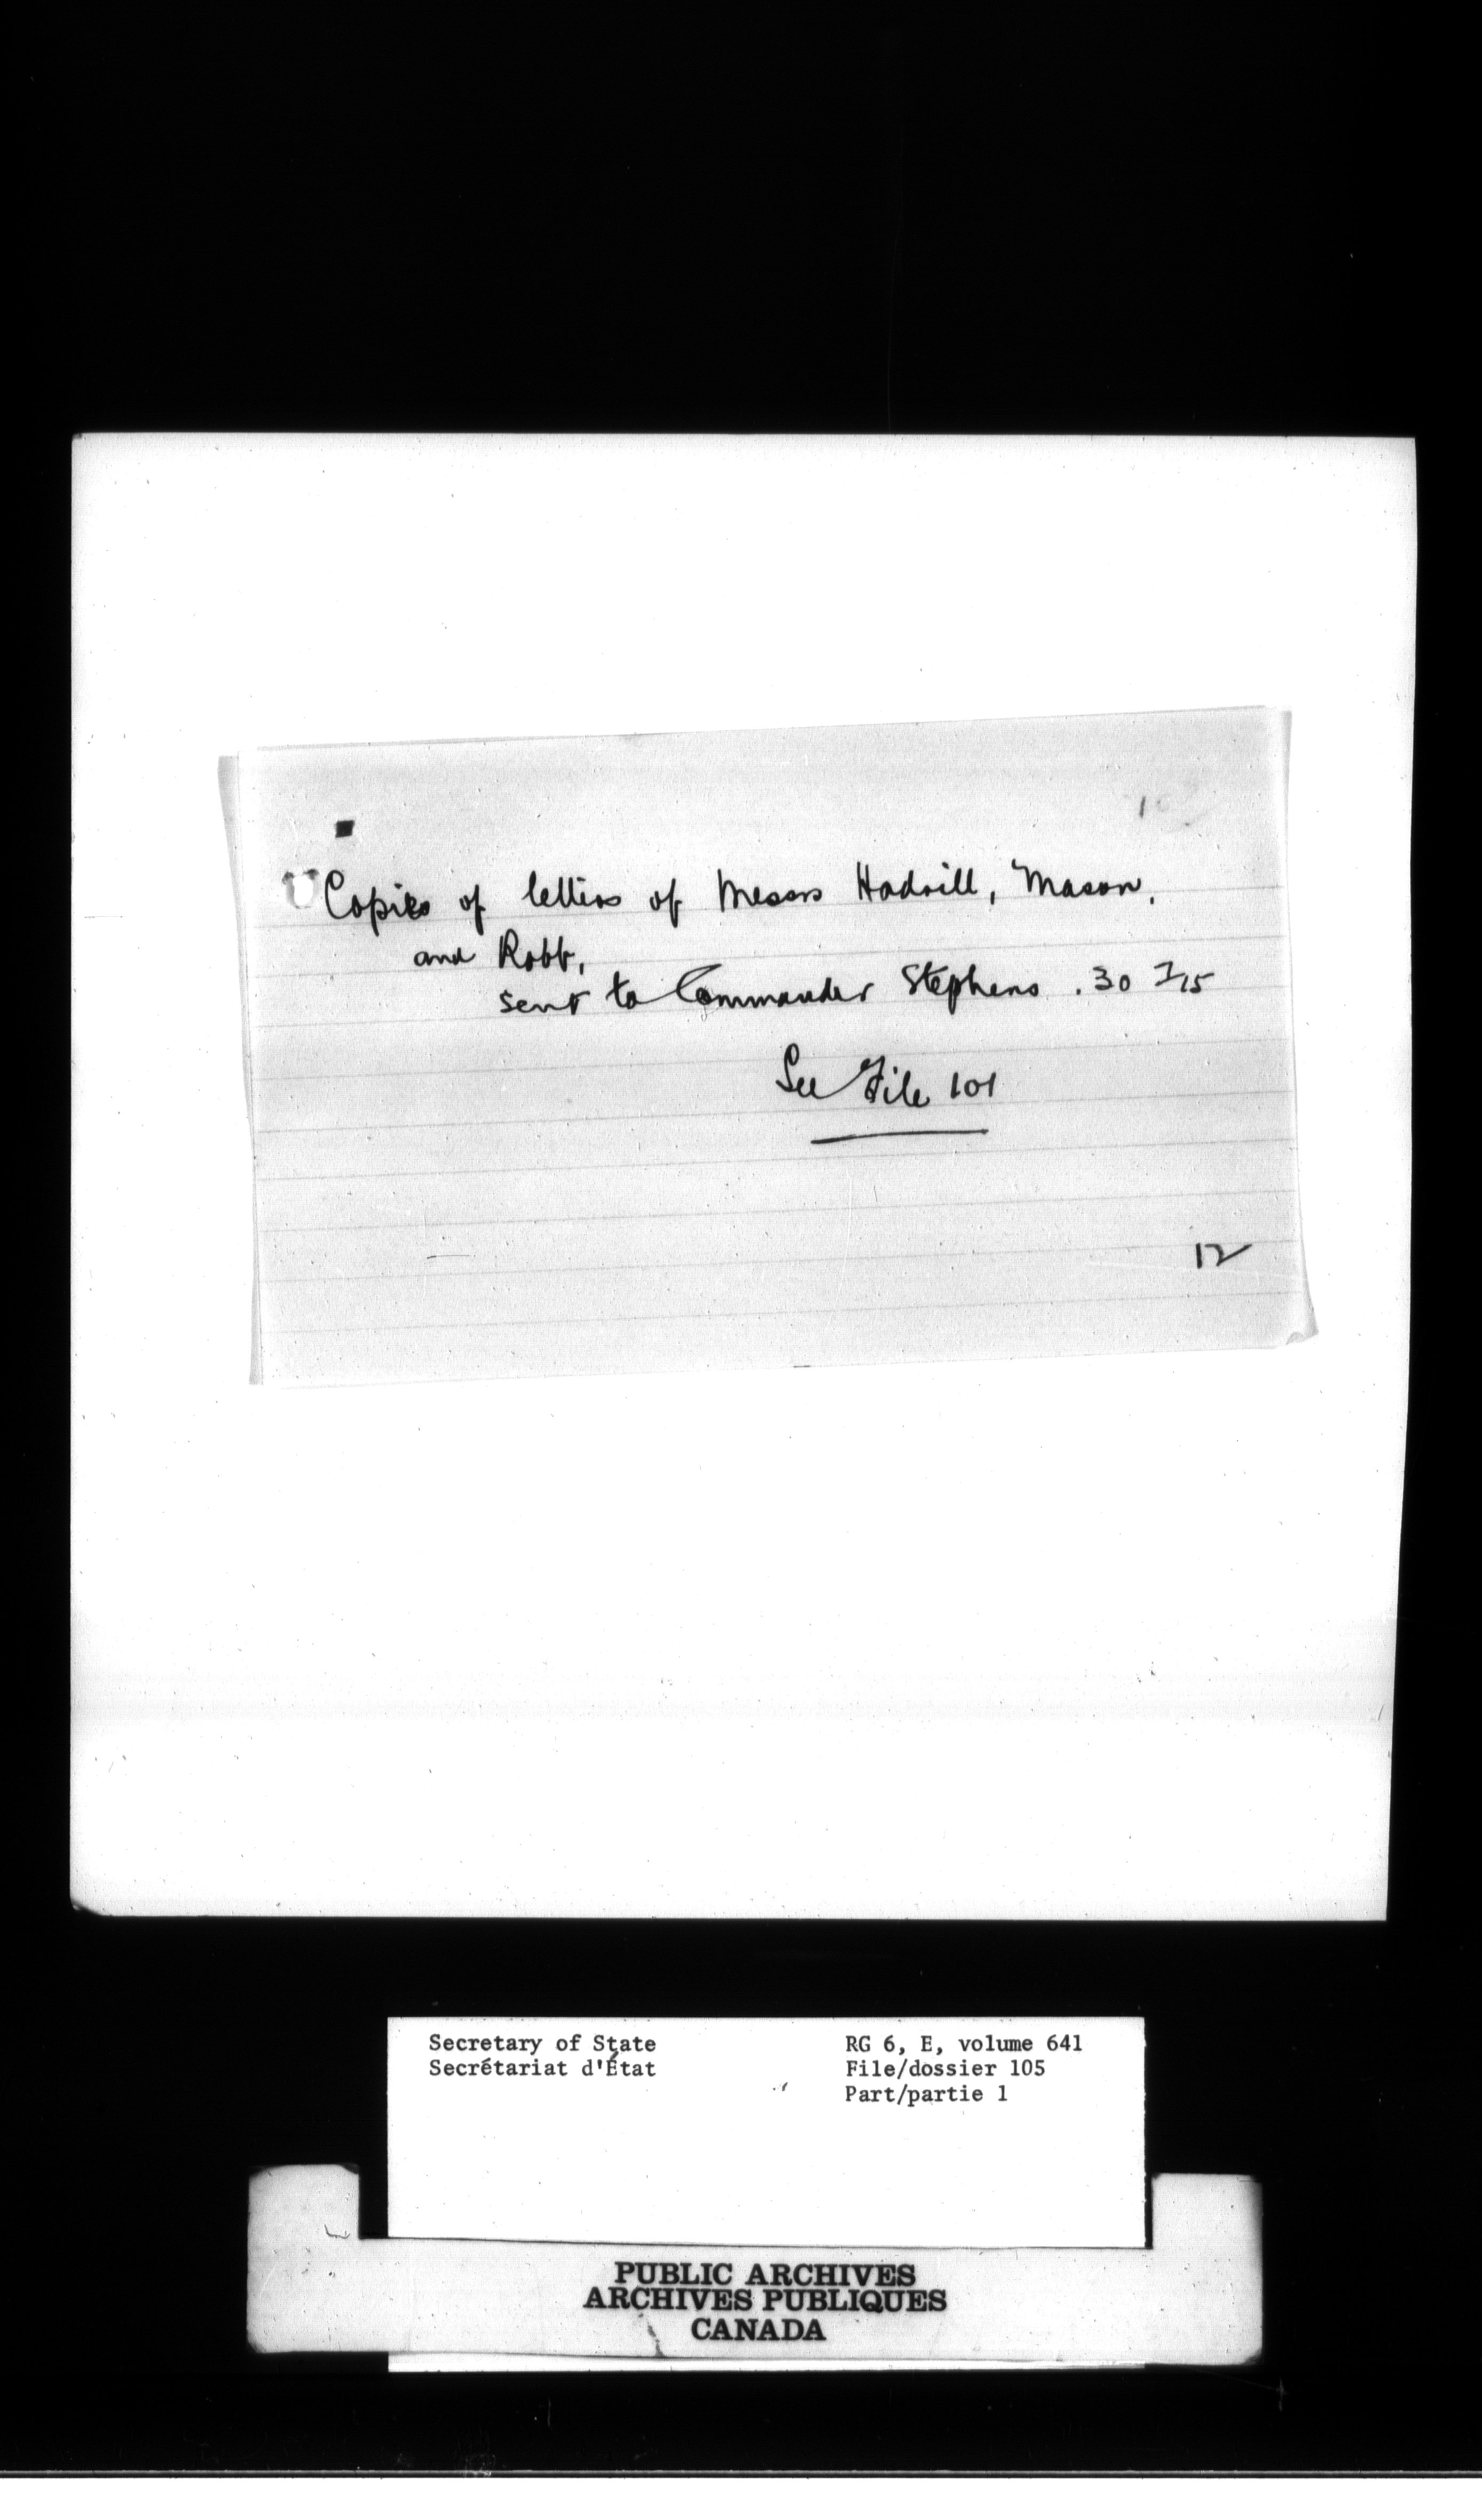 Copies of letters of Messrs Hadrill, Mason,
and Robb,
sent to Commander Stephens . 30 7/15
See File 101
12
Secretary of State
Secrétariat d'État
RG 6, E, volume 641
File/dossier 105
Part/partie 1
PUBLIC ARCHIVES
ARCHIVES PUBLIQUES
CANADA